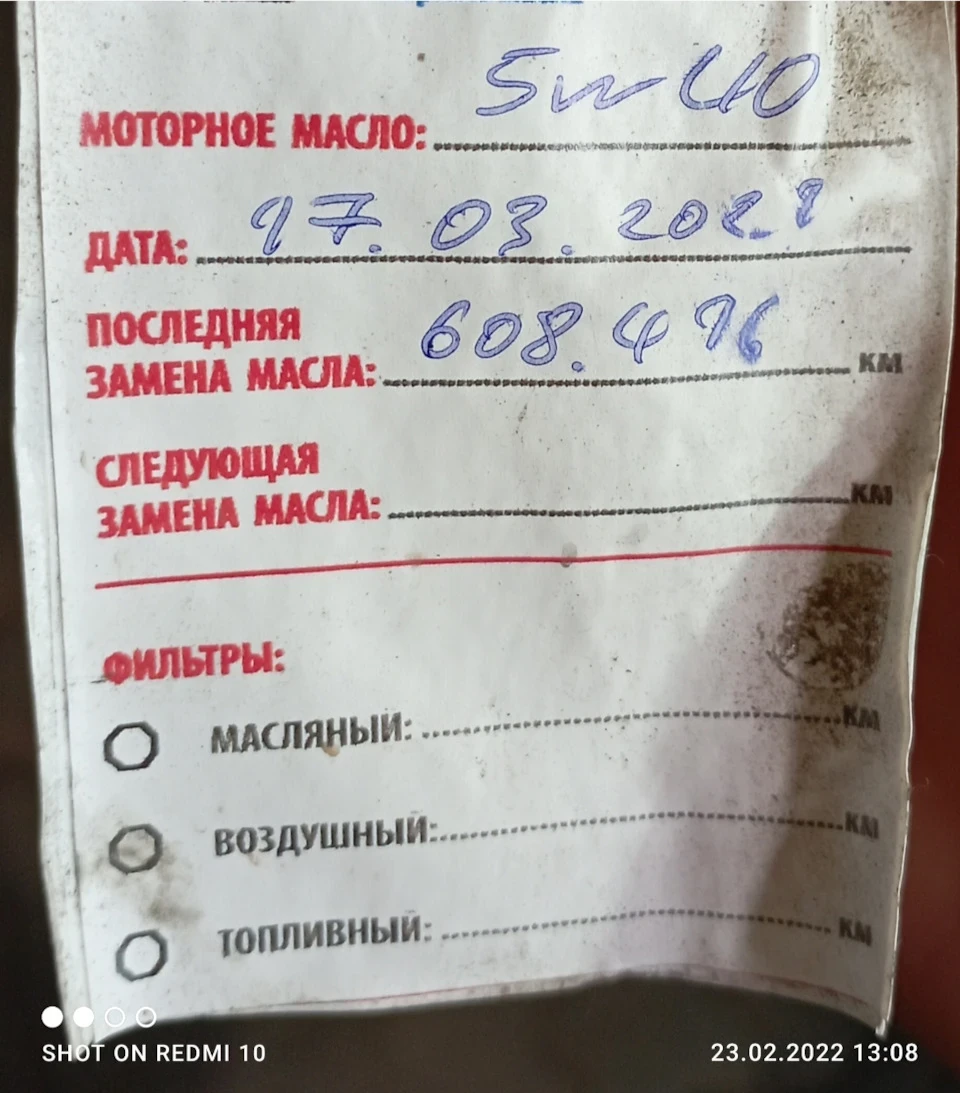 МОТОРНОЕ МАСЛО: 5w40 
ДАТА: 17.03.2021
ПОСЛЕДНЯЯ
ЗАМЕНА МАСЛА: 608.496 КМ
СЛЕДУЮЩАЯ
ЗАМЕНА МАСЛА: КМ
ФИЛЬТРЫ:
МАСЛЯНЫЙ: КМ
ВОЗДУШНЫЙ: КМ
ТОПЛИВНЫЙ: КМ
SHOT ON REDMI 10
23.02.2022 13:08